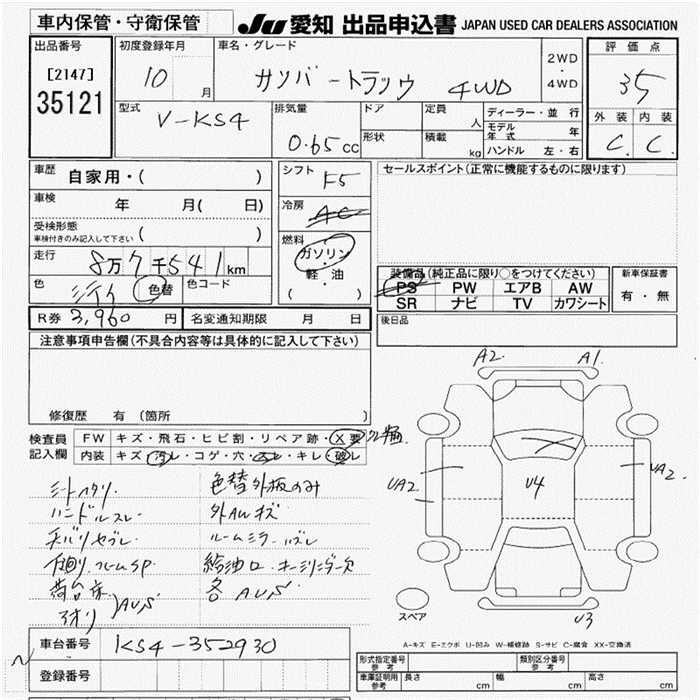 車内保管・守衛保管 JU 愛知 出品申込書 JAPAN USED CAR DEALERS ASSOCIATION
出品番号 初度登録年月 車名・グレード 2WD ・ 4WD 評価点
[2147] 10 月 サンバートラック 4WD 35
35121
型式 V-KS4 排気量 0.65cc ドア 定員 人 ディーラー・並行 外装 内装
形状 積載 kg モデル年式 年 C. C.
ハンドル 左・右
車歴 自家用・( ) シフト F5 セールスポイント(正常に機能するものに限ります)
車検 年 月( 日) 冷房 AC
受検形態 車検付きのみ記入して下さい ( ) 燃料 ガソリン
走行 8万7千541km 軽・油
色 色替 色コード ( ) 装備品(純正品に限り○をつけてください) 新車保証書
PS PW エアB AW 有・無
SR ナビ TV カワシート
R券 3,960円 名変通知期限 月 日 後日品
注意事項申告欄(不具合内容等は具体的に記入して下さい)
A2. A1
修復歴 有 (箇所 )
検査員 FW キズ・飛石・ヒビ割・リペア跡・X要
記入欄 内装 キズ・汚レ・コゲ・穴・スレ・キレ・破レ
UA2. U4 UA2.
シートヘタリ. 色替外板のみ
ハンドルスレ 外AWキズ
ルームミラーハズレ
下廻リ.フレームSP 給油口.
荷台床 各AUS
アオリ AUS
スペア U3
A-キズ E-エクボ U-凹み W-補修跡 S-サビ C-腐食 XX-交換済
車台番号 KS4-352930
登録番号
形式指定番号 参考 類別区分番号 参考
車庫証明用 参考 長さ cm 幅 cm 高さ cm